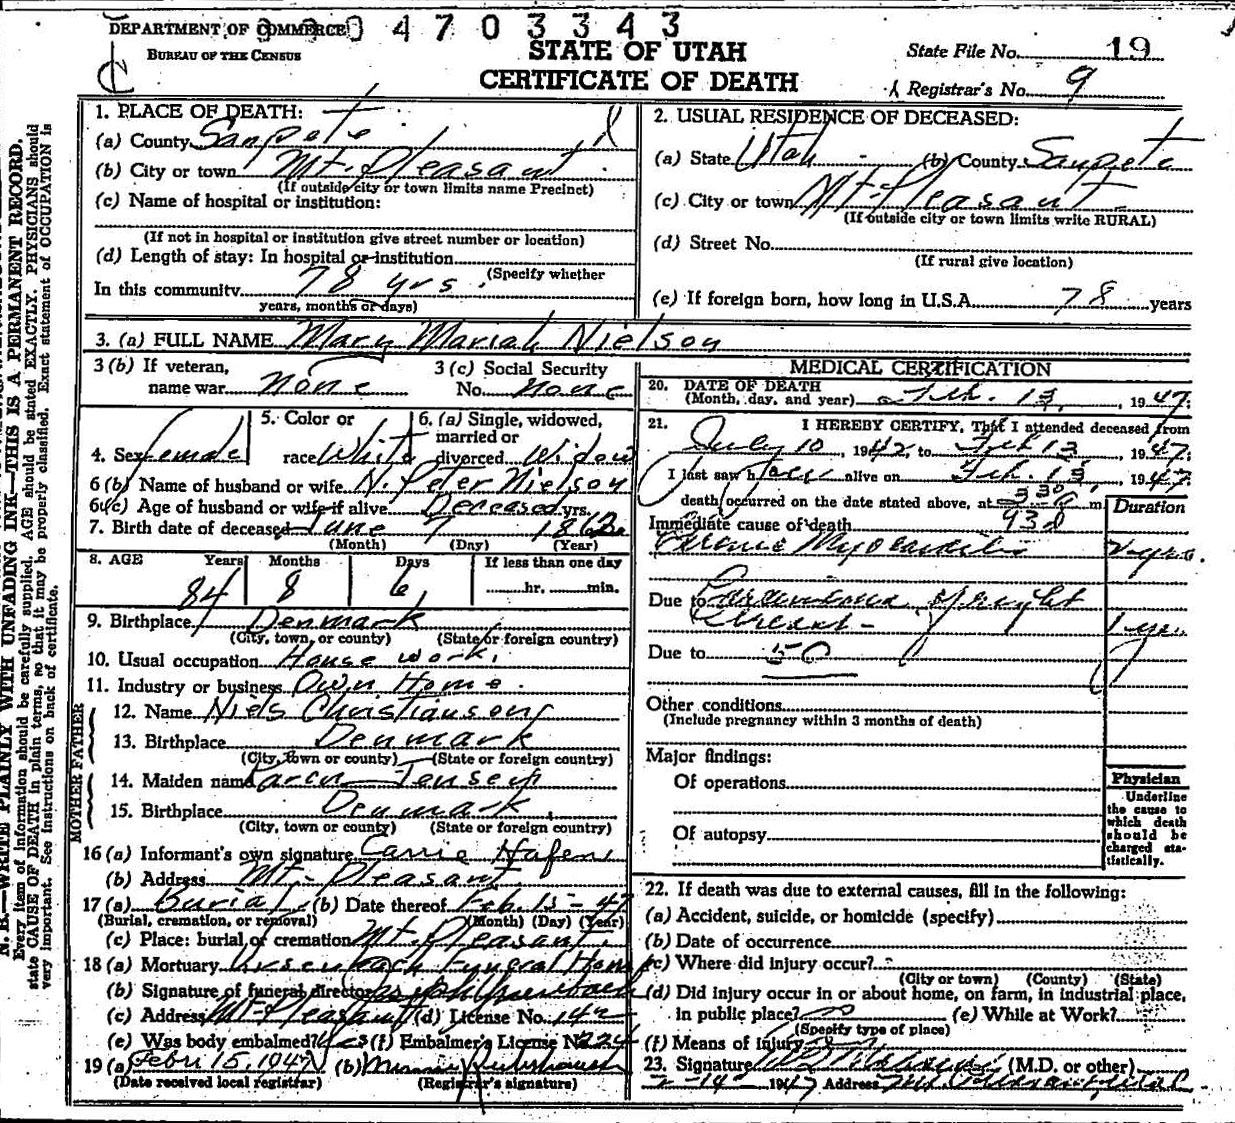 DEPARTMENT OF COMMERCE
4 7 0 3 3 4 3
BUREAU OF THE CENSUS
STATE OF UTAH
CERTIFICATE OF DEATH
State File No. 19
Registrar's No. 9
N. B.—WRITE PLAINLY WITH UNFADING INK—THIS IS A PERMANENT RECORD.
Every item of information should be carefully supplied. AGE should be stated EXACTLY. PHYSICIANS should
state CAUSE OF DEATH in plain terms, so that it may be properly classified. Exact statement of OCCUPATION is
very important. See instructions on back of certificate.
1. PLACE OF DEATH:
(a) County Sanpete
(b) City or town Mt. Pleasant
(If outside city or town limits name Precinct)
(c) Name of hospital or institution:
(If not in hospital or institution give street number or location)
(d) Length of stay: In hospital or institution
(Specify whether
In this community 78 yrs.
years, months or days)
2. USUAL RESIDENCE OF DECEASED:
(a) State Utah (b) County Sanpete
(c) City or town Mt. Pleasant
(If outside city or town limits write RURAL)
(d) Street No.
(If rural give location)
(e) If foreign born, how long in U.S.A. 78 years
3. (a) FULL NAME Mary Mariah Nielson
3 (b) If veteran,
name war none
3 (c) Social Security
No. none
4. Sex female
5. Color or
race White
6. (a) Single, widowed,
married or
divorced Widow
6 (b) Name of husband or wife N. Peter Nielson
6 (c) Age of husband or wife if alive Deceased yrs.
7. Birth date of deceased June 7 1862
(Month) (Day) (Year)
8. AGE Years Months Days If less than one day
84 8 6 hr. min.
9. Birthplace Denmark
(City, town, or county) (State or foreign country)
10. Usual occupation House work.
11. Industry or business Own Home.
FATHER
12. Name Niels Christiansen
13. Birthplace Denmark
(City, town or county) (State or foreign country)
MOTHER
14. Maiden name Karen Jensen
15. Birthplace Denmark
(City, town or county) (State or foreign country)
16 (a) Informant's own signature Carrie Hafen
(b) Address Mt. Pleasant
17 (a) Burial (b) Date thereof Feb. 15 - 47
(Burial, cremation, or removal) (Month) (Day) (Year)
(c) Place: burial or cremation Mt. Pleasant.
18 (a) Mortuary Ursenbach Funeral Home
(b) Signature of funeral director
(c) Address Mt. Pleasant (d) License No. 142
(e) Was body embalmed? Yes (f) Embalmer's License No. 224
19 (a) Febr 15, 1947 (b)
(Date received local registrar) (Registrar's signature)
MEDICAL CERTIFICATION
20. DATE OF DEATH
(Month, day, and year) Feb. 13, 1947.
21. I HEREBY CERTIFY, That I attended deceased from
July 10, 1942, to Feb 13, 1947.
I last saw her alive on Feb. 13, 1947
death occurred on the date stated above, at 3 30 a m
93d
Duration
Immediate cause of death
Chronic Myocarditis 2 yrs.
Due to Carcinoma of right
breast - 1 yr.
Due to 50
Other conditions
(Include pregnancy within 3 months of death)
Major findings:
Of operations
Of autopsy
Physician
Underline
the cause to
which death
should be
charged sta-
tistically.
22. If death was due to external causes, fill in the following:
(a) Accident, suicide, or homicide (specify)
(b) Date of occurrence
(c) Where did injury occur?
(City or town) (County) (State)
(d) Did injury occur in or about home, on farm, in industrial place,
in public place? no (e) While at Work?
(Specify type of place)
(f) Means of injury
23. Signature (M.D. or other)
2-14- 1947 Address Mt Pleasant Utah